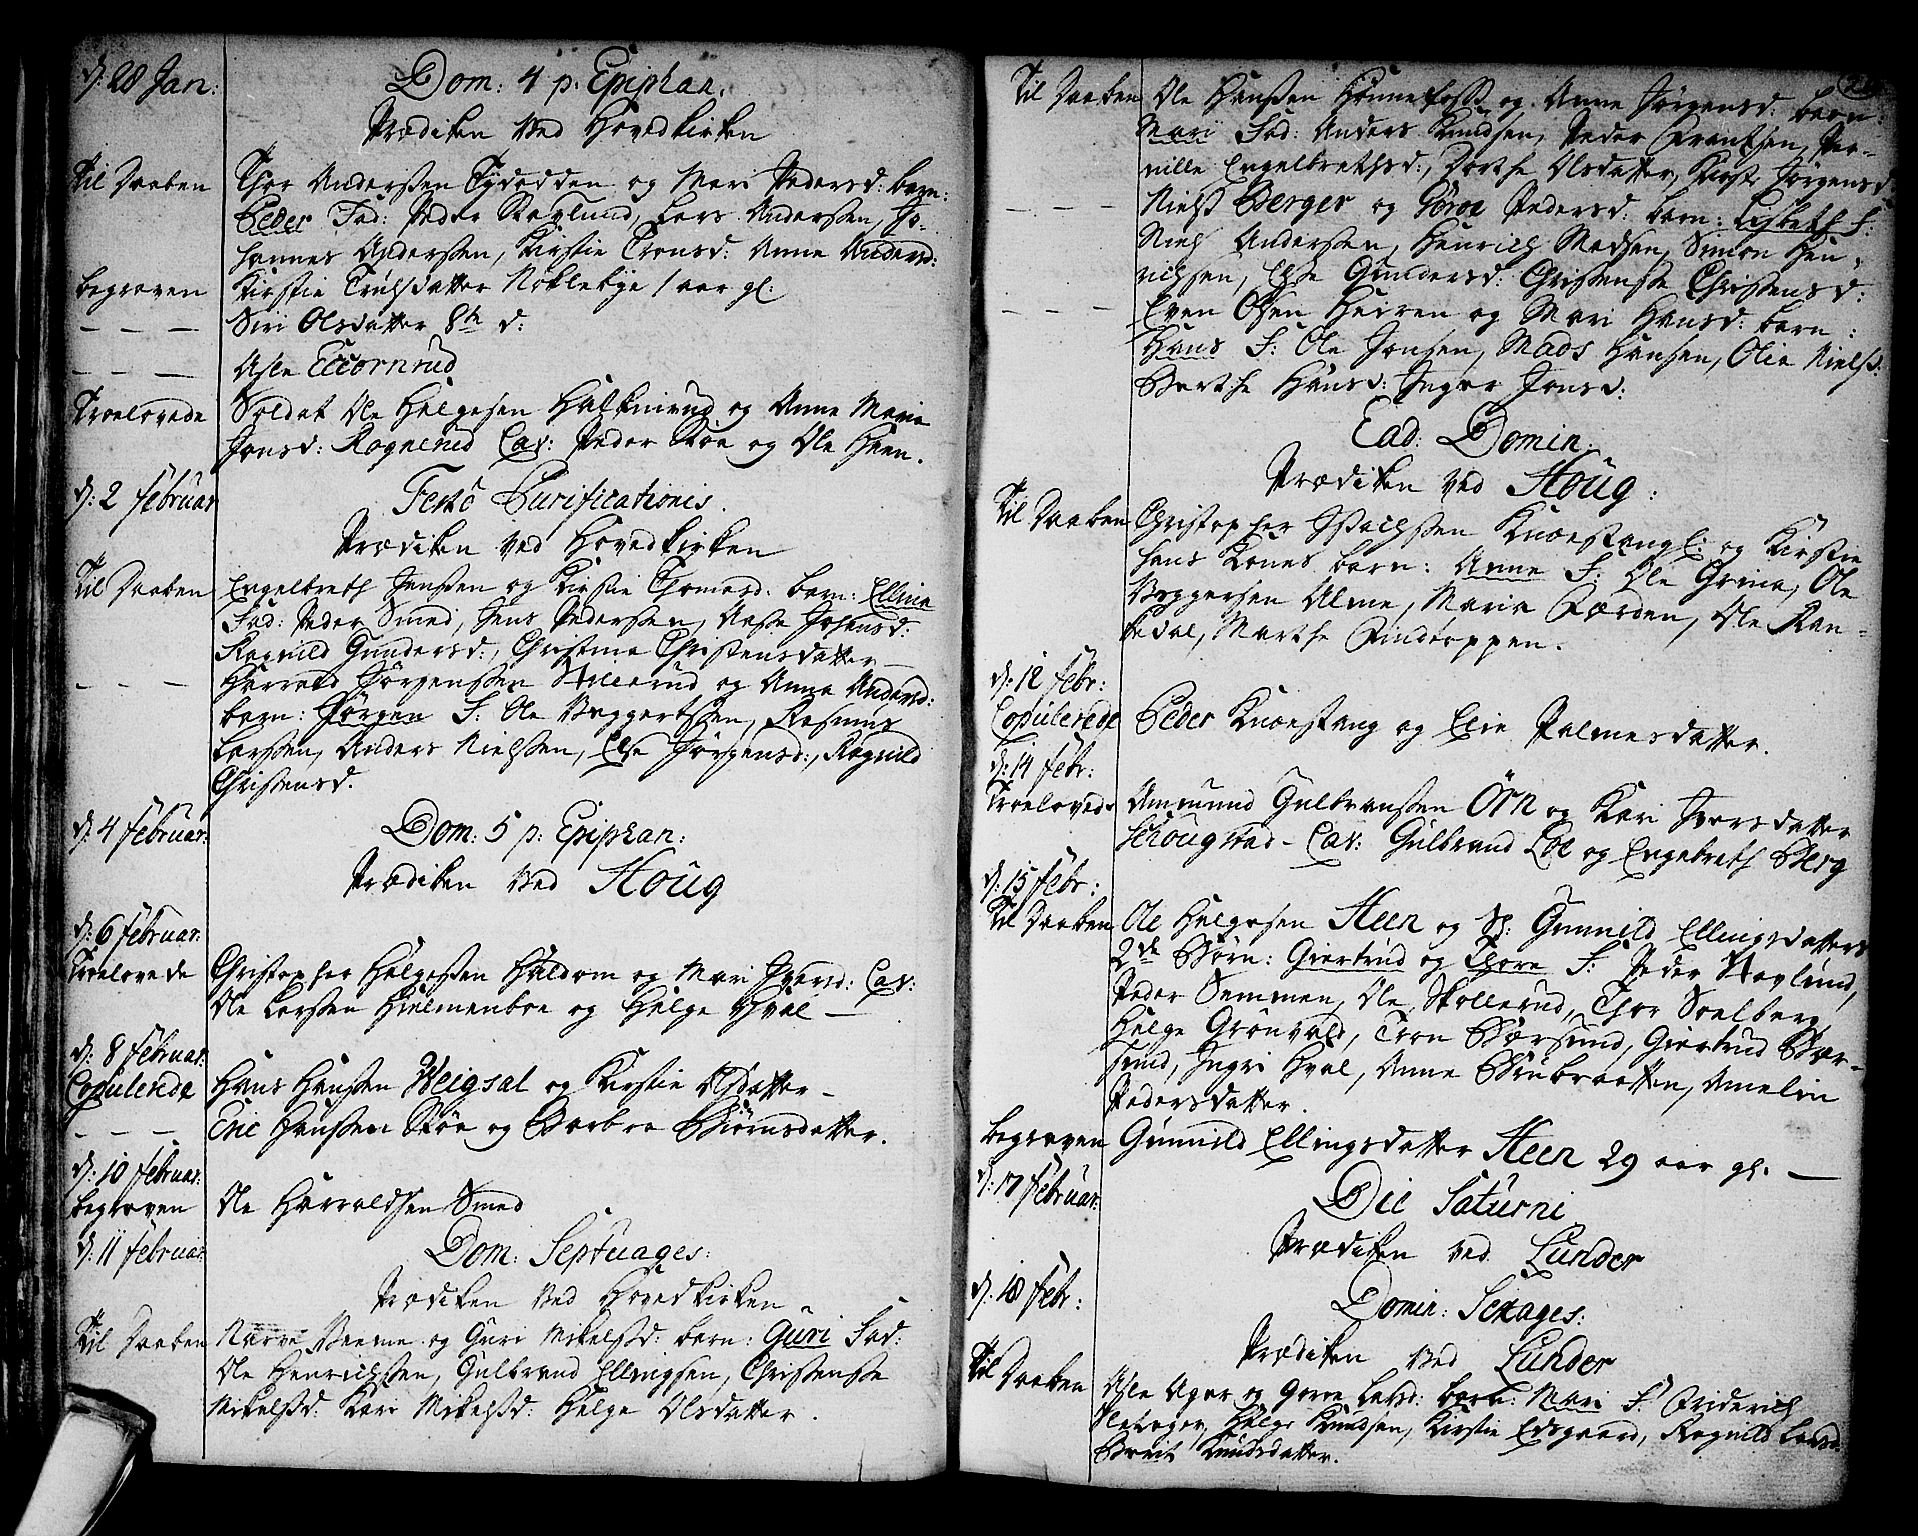 d: 28 Jan:
Dom: 4 p: Epiphan:
Prædiken ved Hovedkirken
Til Daaben
Thor Anderssen Tydodden og Mari Pedersd: barn:
Peder Fad: Peder Lars Anderssen, Jo-
hannes Anderssen, Kirstie Tronsd: Anne Andersd:
begraven
Kirstie Trulsdatter Noklebye 1 aar gl:
— — —
Siri Olsdatter d:
— — —
Asle Eccornrud
Troelovede
Soldat Ole Helgesen og Anne Marie
Jonsd: Rognerud Cav: Peder Skøe og Ole Heen.
d: 2 februar
Festo Purificationis.
Prædiken ved Hovedkirken
Til Daaben
Engelbreth Jenssen og Kirstie Thomasd: barn: Elline
Fad: Peder Smed, Jens Pederssen, Aase Johansd:
Ragnild Gundersd:, Christine Christensdatter —
— — —
Harrald Jørgenssen og Anne Andersd:
barn: Jørgen F: Ole Rasmus
Larssen, Anders Nielssen, Else Jørgensd:, Ragnild
Christensd.
d: 4 februar:
Dom: 5 p: Epiphan:
Prædiken ved Houg
d: 6 februar:
Troelovede
Christopher Helgessen Huldom og Mari Iversd: Cav:
Ole Larssen Hielmenboe og Helge Hval —
d: 8 februar:
Copulerede
Hans Hanssen Veigsal og Kirstie Olsdatter —
— — —
Eric Hanssen Skøe og Barbro Biørnsdatter.
d: 10 februar:
begraven
Ole Harraldsen Smed
d: 11 februar:
Dom: Septuages:
Prædiken ved Hovedkirken
Til Daaben
Narve Veeme og Guri Mikelsd: barn: Guri Fad:
Ole Henrichssen, Gulbrand Ellingsen, Christense
Mikelsd: Kari Mikelsd: Helge Olsdatter.
Til Daaben
Ole Hanssen Hønnefoss og Anne Jørgensd: barn:
Mari Fad: Anders Knudsen, Peder Frantsen, Per-
nille Engelbrethsd:, Dorthe Olsdatter, Kirsti Jørgensd
— — —
Niels Berger og Gøroe Pedersd: barn: Lisbeth F:
Niels Andersen, Henrich Madsen, Simon Hen-
richsen, Else Gundersd: Christense Christensd:
— — —
Even Olsen Heiren og Mari Hansd: barn:
Hans F: Ole Jonsen, Mads Hansen, Olia Nielsd:
Berthe Hansd: Inger Jonsd:
Ead: Domin:
Prædiken ved Houg:
Til Daaben
Christopher Isachssen Knoestang og Kirstie
hans Kones barn: Anne F: Ole Grina, Ole
Alme, Maria Færden, Ole Ran-
dal, Marthe Findtoppen.
d: 12 febr:
Copulerede
Peder Knoestang og Elie Palmesdatter.
d: 14 febr:
Troeloveds
Ammund Gulbranssen Ørn og Kari Iversdatter
Schougstad - Cav: Gulbrand Loe og Engebreth Berg
d: 15 febr:
Til Daaben
Ole Helgesen Heen og Sl: Gunnild Ellingsdatters
2de Børn: Giertrud og Thore F: Peder
Peder Semmen, Ole Skollerud, Thor Soelberg,
Helge Grønvold, Tron Børsund, Giertrud Bør-
sund, Ingri Hval, Anne Bimbraatten, Amelin
Pedersdatter.
begraven
Gunnild Ellingsdatter Heen 29 aar gl. —
d: 17 februar:
Die Saturni
Prædiken ved Lunder
d: 18 febr:
Domin: Sexages:
Prædiken ved Lunder
Til Daaben
Asle Ager og Goroe Larsd: barn: Mari F: Friderich
Helge Knudsen, Kirstie Edsgaard, Ragnild Larsd
Berit Knudsdatter.